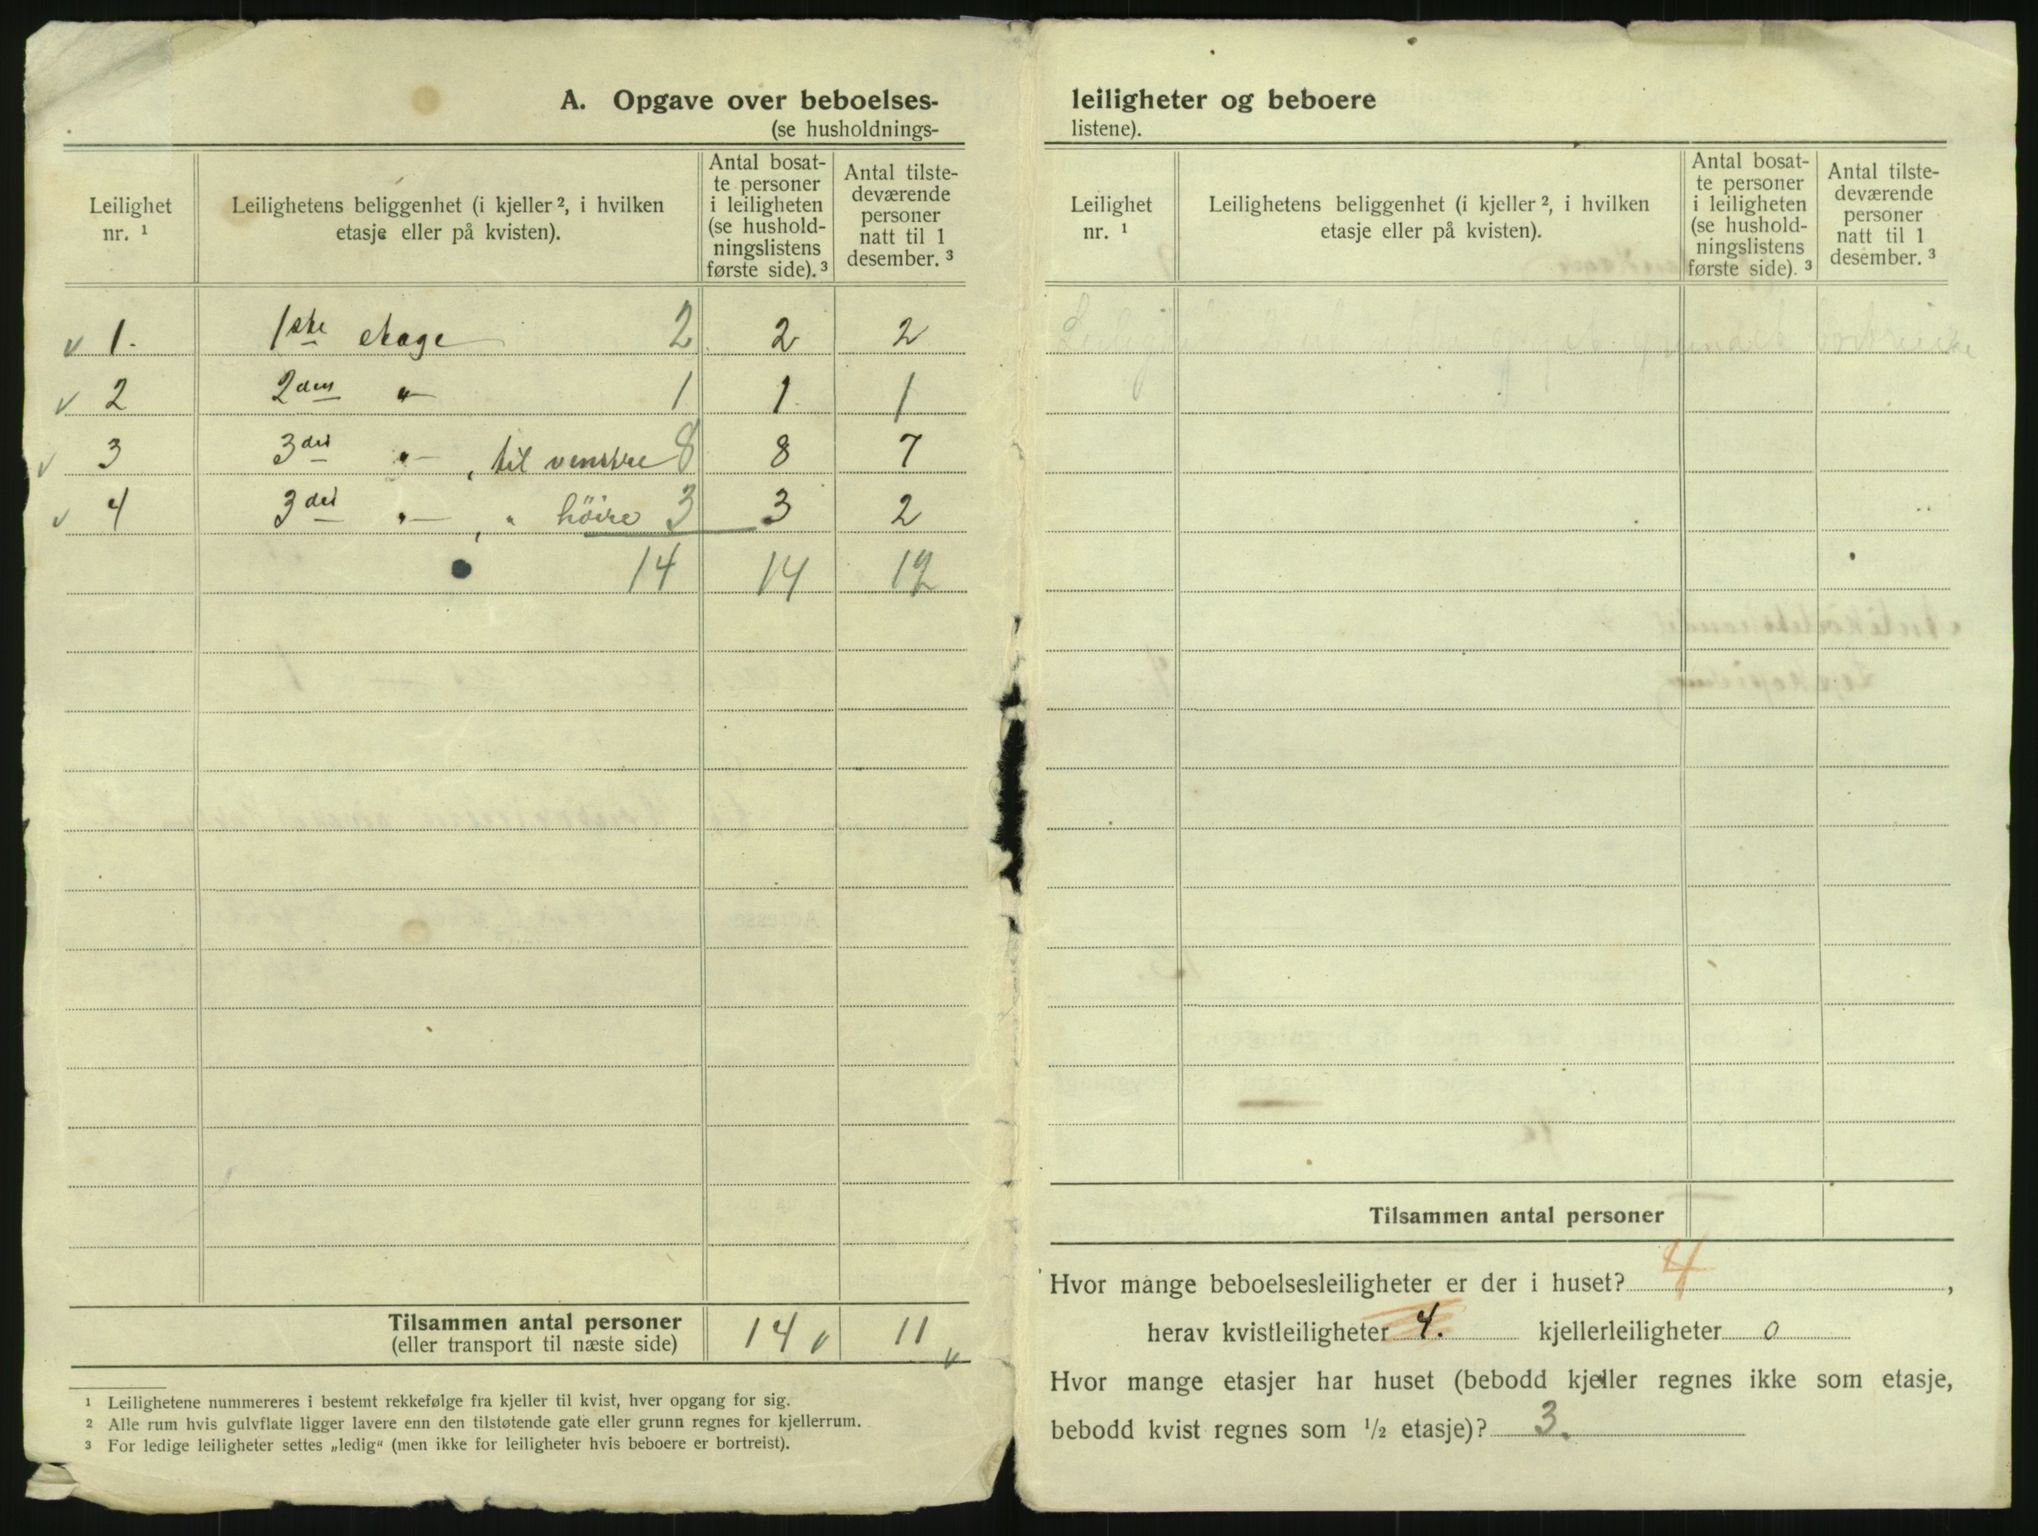 A. Opgave over beboelses-
(se husholdnings-
Leilighet nr. ¹
Leilighetens beliggenhet (i kjeller ², i hvilken etasje eller på kvisten).
Antal bosat-
te personer
i leiligheten
(se hushold-
ningslistens
første side). ³
Antal tilste-
deværende
personer
natt til 1
desember. ³
v 1. 1ste etage 2 2 2
v 2 2den " 1 1 1
v 3 3die " , til venstre 8 8 7
v 4 3die " , " höire 3 3 2
14 14 12
Tilsammen antal personer 14 v 11 v
(eller transport til næste side)
¹ Leilighetene nummereres i bestemt rekkefølge fra kjeller til kvist, hver opgang for sig.
² Alle rum hvis gulvflate ligger lavere enn den tilstøtende gate eller grunn regnes for kjellerrum.
³ For ledige leiligheter settes „ledig“ (men ikke for leiligheter hvis beboere er bortreist).
leiligheter og beboere
listene).
Leilighet nr. ¹
Leilighetens beliggenhet (i kjeller ², i hvilken etasje eller på kvisten).
Antal bosat-
te personer
i leiligheten
(se hushold-
ningslistens
første side). ³
Antal tilste-
deværende
personer
natt til 1
desember. ³
Tilsammen antal personer
Hvor mange beboelsesleiligheter er der i huset? 4 ,
herav kvistleiligheter 4. kjellerleiligheter 0
Hvor mange etasjer har huset (bebodd kjeller regnes ikke som etasje,
bebodd kvist regnes som ½ etasje)? 3.